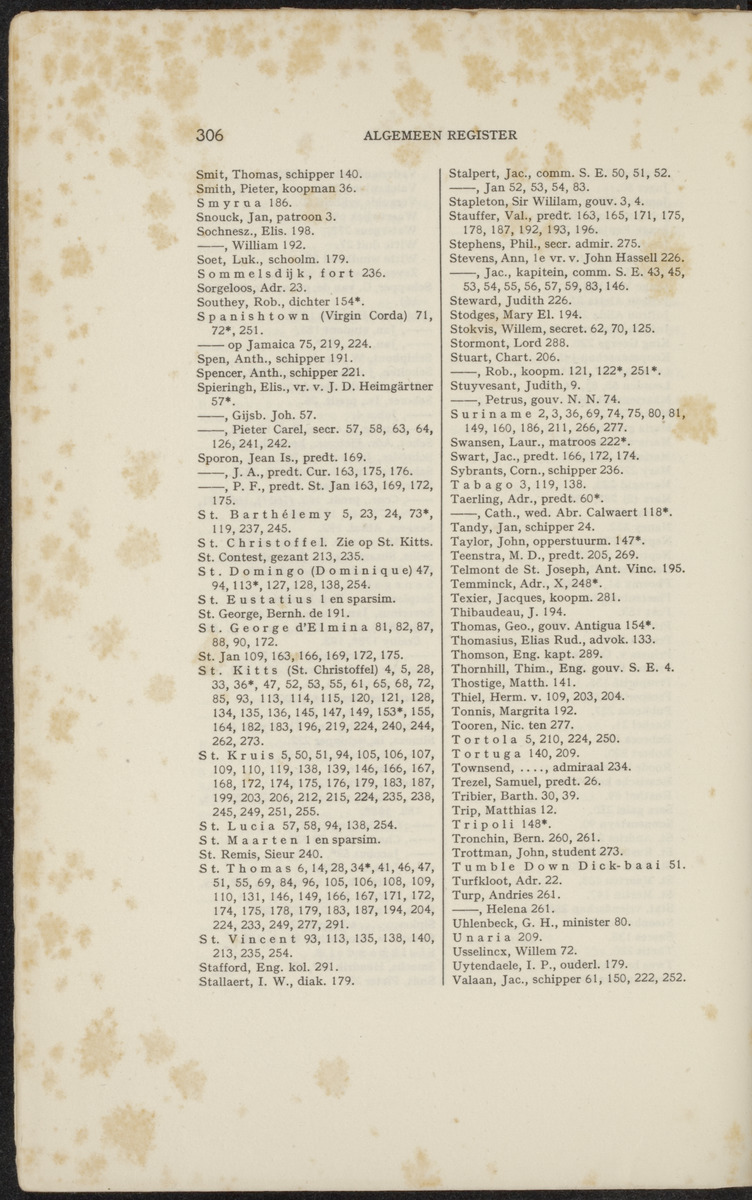 306
ALGEMEEN REGISTER
Smit, Thomas, schipper 140.
Smith, Pieter, koopman 36.
Smyrna 186.
Snouck, Jan, patroon 3.
Sochnesz., Elis. 198.
——, William 192.
Soet, Luk., schoolm. 179.
Sommelsdijk, fort 236.
Sorgeloos, Adr. 23.
Southey, Rob., dichter 154*.
Spanishtown (Virgin Corda) 71,
72*, 251.
—— op Jamaica 75, 219, 224.
Spen, Anth., schipper 191.
Spencer, Anth., schipper 221.
Spieringh, Elis., vr. v. J. D. Heimgärtner
57*.
——, Gijsb. Joh. 57.
——, Pieter Carel, secr. 57, 58, 63, 64,
126, 241, 242.
Sporon, Jean Is., predt. 169.
——, J. A., predt. Cur. 163, 175, 176.
——, P. F., predt. St. Jan 163, 169, 172,
175.
St. Barthélemy 5, 23, 24, 73*,
119, 237, 245.
St. Christoffel. Zie op St. Kitts.
St. Contest, gezant 213, 235.
St. Domingo (Dominique) 47,
94, 113*, 127, 128, 138, 254.
St. Eustatius 1 en sparsim.
St. George, Bernh. de 191.
St. George d'Elmina 81, 82, 87,
88, 90, 172.
St. Jan 109, 163, 166, 169, 172, 175.
St. Kitts (St. Christoffel) 4, 5, 28,
33, 36*, 47, 52, 53, 55, 61, 65, 68, 72,
85, 93, 113, 114, 115, 120, 121, 128,
134, 135, 136, 145, 147, 149, 153*, 155,
164, 182, 183, 196, 219, 224, 240, 244,
262, 273.
St. Kruis 5, 50, 51, 94, 105, 106, 107,
109, 110, 119, 138, 139, 146, 166, 167,
168, 172, 174, 175, 176, 179, 183, 187,
199, 203, 206, 212, 215, 224, 235, 238,
245, 249, 251, 255.
St. Lucia 57, 58, 94, 138, 254.
St. Maarten 1 en sparsim.
St. Remis, Sieur 240.
St. Thomas 6, 14, 28, 34*, 41, 46, 47,
51, 55, 69, 84, 96, 105, 106, 108, 109,
110, 131, 146, 149, 166, 167, 171, 172,
174, 175, 178, 179, 183, 187, 194, 204,
224, 233, 249, 277, 291.
St. Vincent 93, 113, 135, 138, 140,
213, 235, 254.
Stafford, Eng. kol. 291.
Stallaert, I. W., diak. 179.
Stalpert, Jac., comm. S. E. 50, 51, 52.
——, Jan 52, 53, 54, 83.
Stapleton, Sir Wililam, gouv. 3, 4.
Stauffer, Val., predt. 163, 165, 171, 175,
178, 187, 192, 193, 196.
Stephens, Phil., secr. admir. 275.
Stevens, Ann, 1e vr. v. John Hassell 226.
——, Jac., kapitein, comm. S. E. 43, 45,
53, 54, 55, 56, 57, 59, 83, 146.
Steward, Judith 226.
Stodges, Mary El. 194.
Stokvis, Willem, secret. 62, 70, 125.
Stormont, Lord 288.
Stuart, Chart. 206.
——, Rob., koopm. 121, 122*, 251*.
Stuyvesant, Judith, 9.
——, Petrus, gouv. N. N. 74.
Suriname 2, 3, 36, 69, 74, 75, 80, 81,
149, 160, 186, 211, 266, 277.
Swansen, Laur., matroos 222*.
Swart, Jac., predt. 166, 172, 174.
Sybrants, Corn., schipper 236.
Tabago 3, 119, 138.
Taerling, Adr., predt. 60*.
——, Cath., wed. Abr. Calwaert 118*.
Tandy, Jan, schipper 24.
Taylor, John, opperstuurm. 147*.
Teenstra, M. D., predt. 205, 269.
Telmont de St. Joseph, Ant. Vinc. 195.
Temminck, Adr., X, 248*.
Texier, Jacques, koopm. 281.
Thibaudeau, J. 194.
Thomas, Geo., gouv. Antigua 154*.
Thomasius, Elias Rud., advok. 133.
Thomson, Eng. kapt. 289.
Thornhill, Thim., Eng. gouv. S. E. 4.
Thostige, Matth. 141.
Thiel, Herm. v. 109, 203, 204.
Tonnis, Margrita 192.
Tooren, Nic. ten 277.
Tortola 5, 210, 224, 250.
Tortuga 140, 209.
Townsend, ...., admiraal 234.
Trezel, Samuel, predt. 26.
Tribier, Barth. 30, 39.
Trip, Matthias 12.
Tripoli 148*.
Tronchin, Bern. 260, 261.
Trottman, John, student 273.
Tumble Down Dick-baai 51.
Turfkloot, Adr. 22.
Turp, Andries 261.
——, Helena 261.
Uhlenbeck, G. H., minister 80.
Unaria 209.
Usselincx, Willem 72.
Uytendaele, I. P., ouderl. 179.
Valaan, Jac., schipper 61, 150, 222, 252.